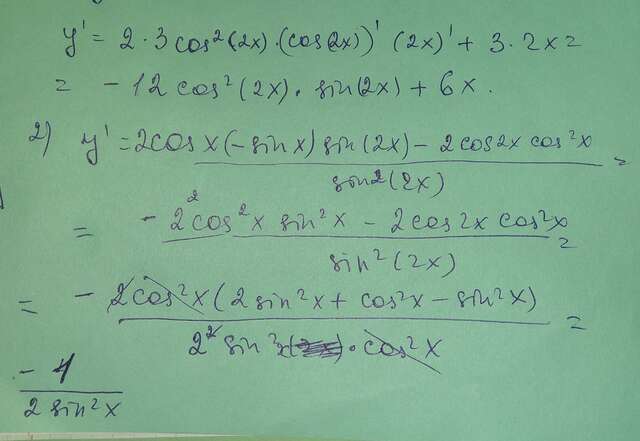 y' = 2·3cos²(2x)·(cos(2x))' (2x)' + 3·2x =
= -12cos²(2x)·sin(2x) + 6x.
2) y' = 2cos x(-sin x) sin(2x) - 2cos2x cos²x =
sin2(2x)
= -2²cos²x sin²x - 2cos2x cos²x =
sin²(2x)
= -2cos²x(2sin²x + cos²x - sin²x) =
2² sin²x · cos²x
-1
2 sin²x